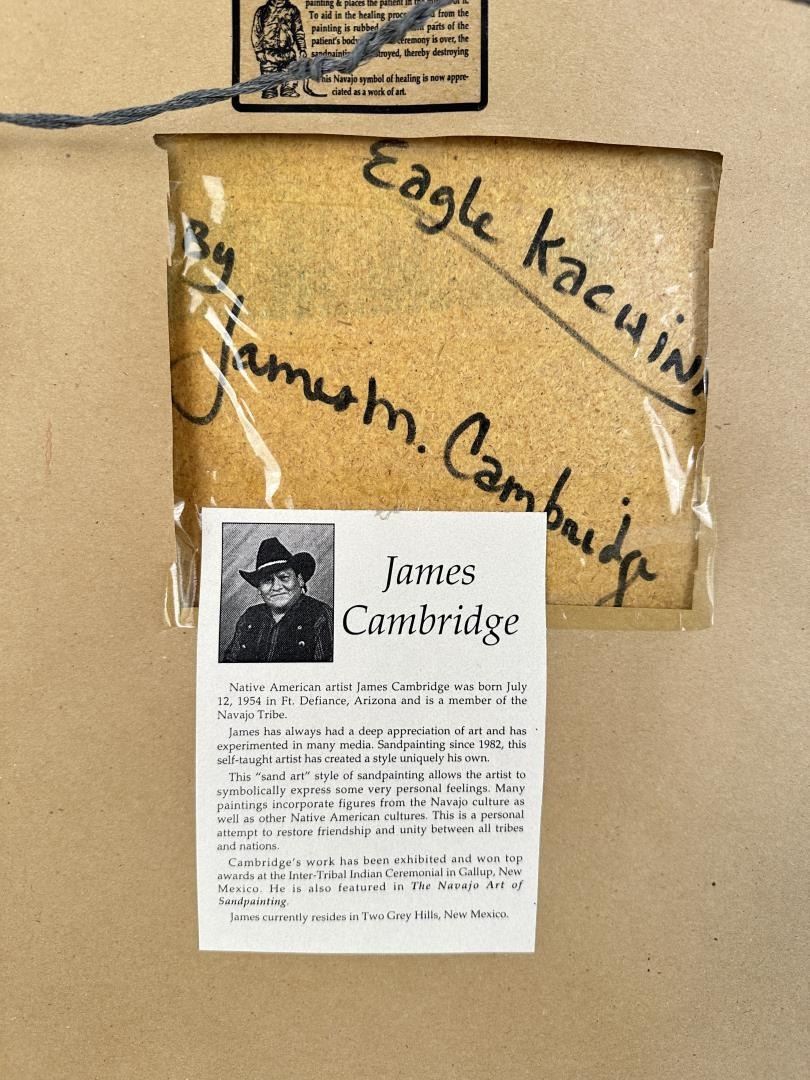 painting & places the patient in the of it.
To aid in the healing from the
painting is rubbed parts of the
patient's body ceremony is over, the
thereby destroying
This Navajo symbol of healing is now appre-
ciated as a work of art.
Eagle Kachin
By
James M. Cambridge
James
Cambridge
Native American artist James Cambridge was born July
12, 1954 in Ft. Defiance, Arizona and is a member of the
Navajo Tribe.
James has always had a deep appreciation of art and has
experimented in many media. Sandpainting since 1982, this
self-taught artist has created a style uniquely his own.
This "sand art" style of sandpainting allows the artist to
symbolically express some very personal feelings. Many
paintings incorporate figures from the Navajo culture as
well as other Native American cultures. This is a personal
attempt to restore friendship and unity between all tribes
and nations.
Cambridge's work has been exhibited and won top
awards at the Inter-Tribal Indian Ceremonial in Gallup, New
Mexico. He is also featured in The Navajo Art of
Sandpainting.
James currently resides in Two Grey Hills, New Mexico.